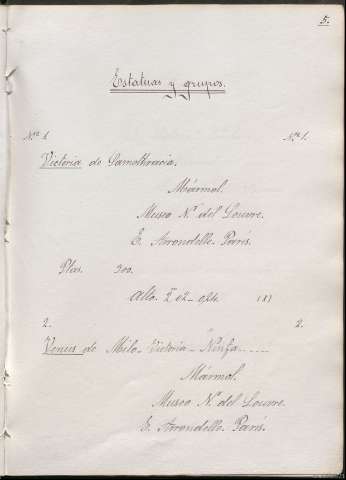 5.
Estatuas y grupos.
Nº 1. Nº 1.
Victoria de Samothracia.
Mármol.
Museo N.ˡ del Louvre.
E. Arrondelle. París.
Ptas. 300.
Alto. 2ᵐ 02 - 024.
2. 2.
Venus de Milo. Victoria - Ninfa.....
Mármol.
Museo N.ˡ del Louvre.
E. Arrondelle. París.